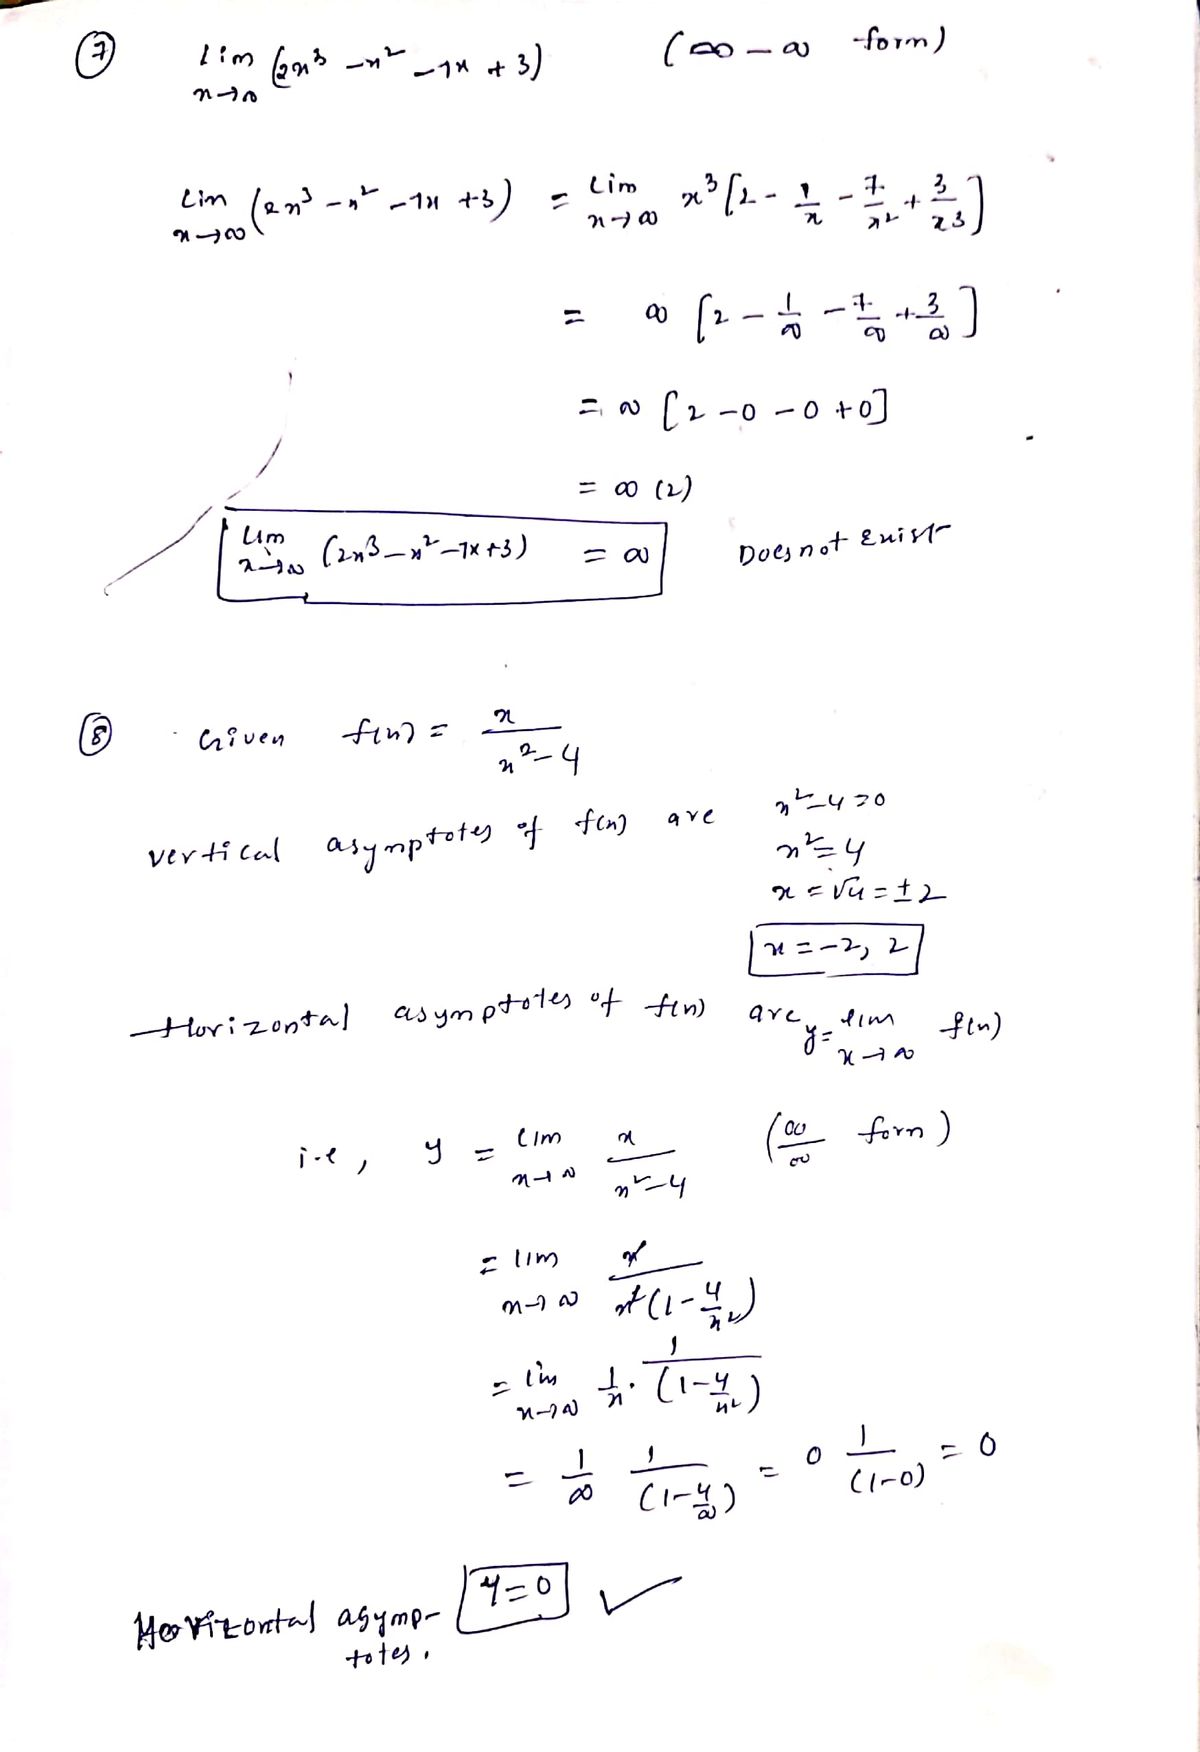 (7) lim x→∞ (2x³ - x² - 7x + 3) (∞ - ∞ form)
Lim x→∞ (2x³ - x² - 7x + 3) = Lim x→∞ x³ [2 - 1/x - 7/x² + 3/x³]
= ∞ [2 - 1/∞ - 7/∞ + 3/∞]
= ∞ [2 - 0 - 0 + 0]
= ∞ (2)
Lim x→∞ (2x³ - x² - 7x + 3) = ∞ Does not Exist
(8) Given f(x) = x/(x² - 4)
vertical asymptotes of f(x) are x² - 4 = 0
x² = 4
x = √4 = ± 2
x = -2, 2
Horizontal asymptotes of f(x) are y = lim x→∞ f(x)
i.e, y = lim x→∞ x/(x² - 4) (∞/∞ form)
= lim x→∞ x/(x²(1 - 4/x²))
= lim x→∞ 1/x · 1/(1 - 4/x²)
= 1/∞ 1/(1 - 4/∞) = 0 1/(1-0) = 0
Horizontal asymp- y = 0 ✓
totes.